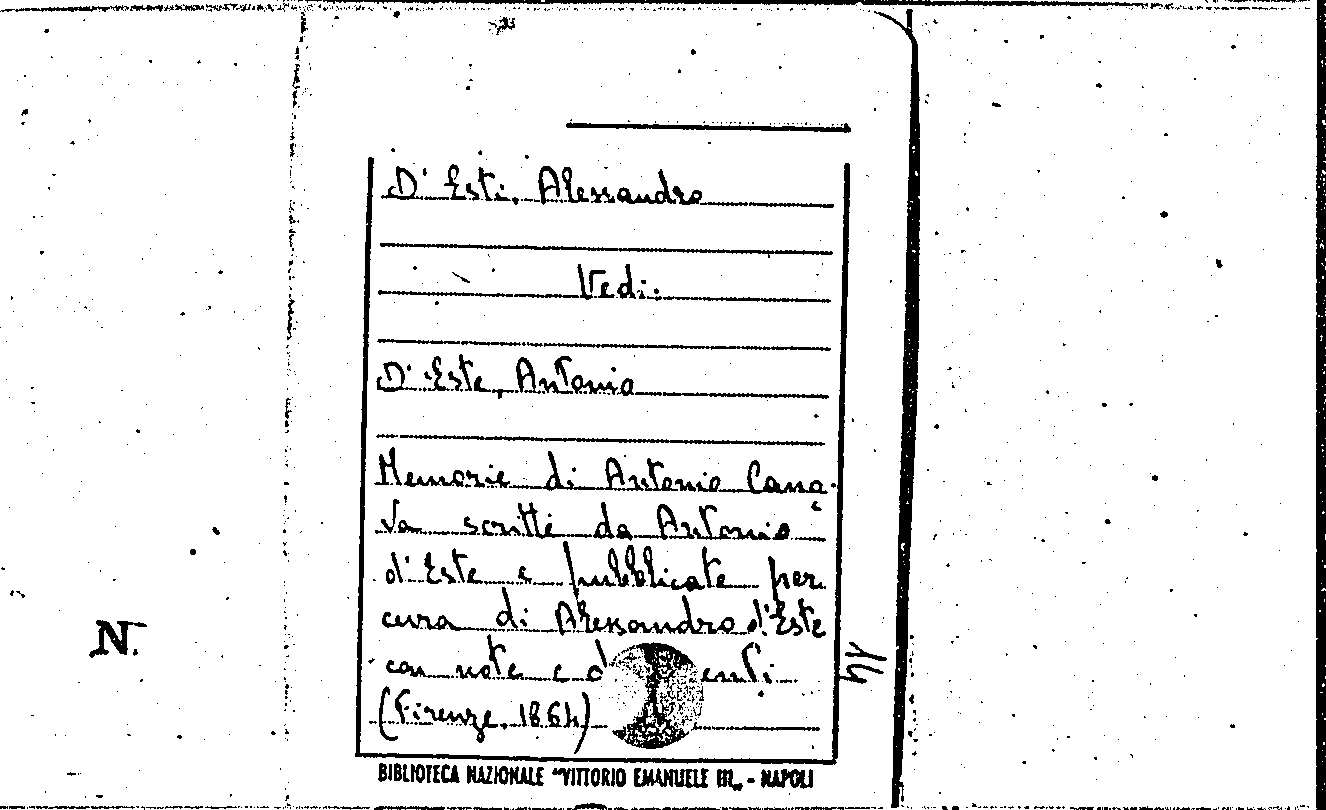 D' Esti, Alessandro
Vedi:
D' Este, Antonio
Memorie di Antonio Cano-
va scritte da Antonio
d'Este e pubblicate per
cura di Alessandro d'Este
con note e d enti
(Firenze, 1864)
N.
14
BIBLIOTECA NAZIONALE "VITTORIO EMANUELE III„ - NAPOLI